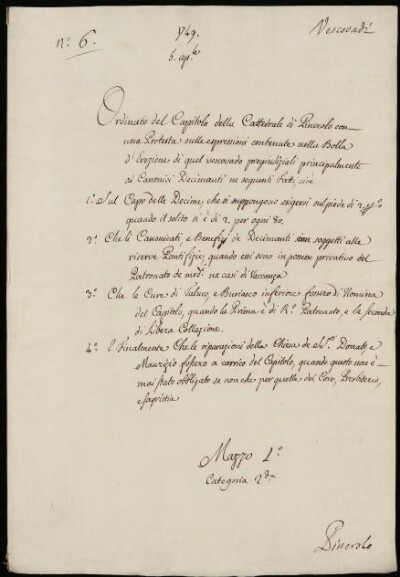 n.° 6.
1749.
5. ap.le
Vescovadi
Ordinato del Capitolo della Cattedrale di Pinerolo con
una Protesta sulle espressioni contenute nella Bolla
d'Erezione di quel vescovado pregiudiziali principalmente
ai Canonici Decimanti ne seguenti fatti cioè
1.° Sul Capo delle Decime, che si suppongono esigersi sul piede di 2. p%
quando il solito si è di 2. per ogni 80.
2.° Che li Canonicati, e Benefizj de Decimanti siano soggetti alle
riserve Pontifizie, quando essi sono in possesso privativo del
Patronato de med.mi ne casi di Vaccanza
3.° Che le Cure di Taluco, e Buriasco inferiore fossero di Nomina
del Capitolo, quando la Prima è di R.° Patronato, e la seconda
di Libera Collazione.
4.° E Finalmente Che le riparazioni della Chiesa de SS.ti Donato, e
Maurizio fossero a carrico del Capitolo, quando questo non è
mai stato obbligato se non che per quelle del Coro, Presbiterio,
e Sagristia
Mazzo 1.°
Categoria 2.da
Pinerolo